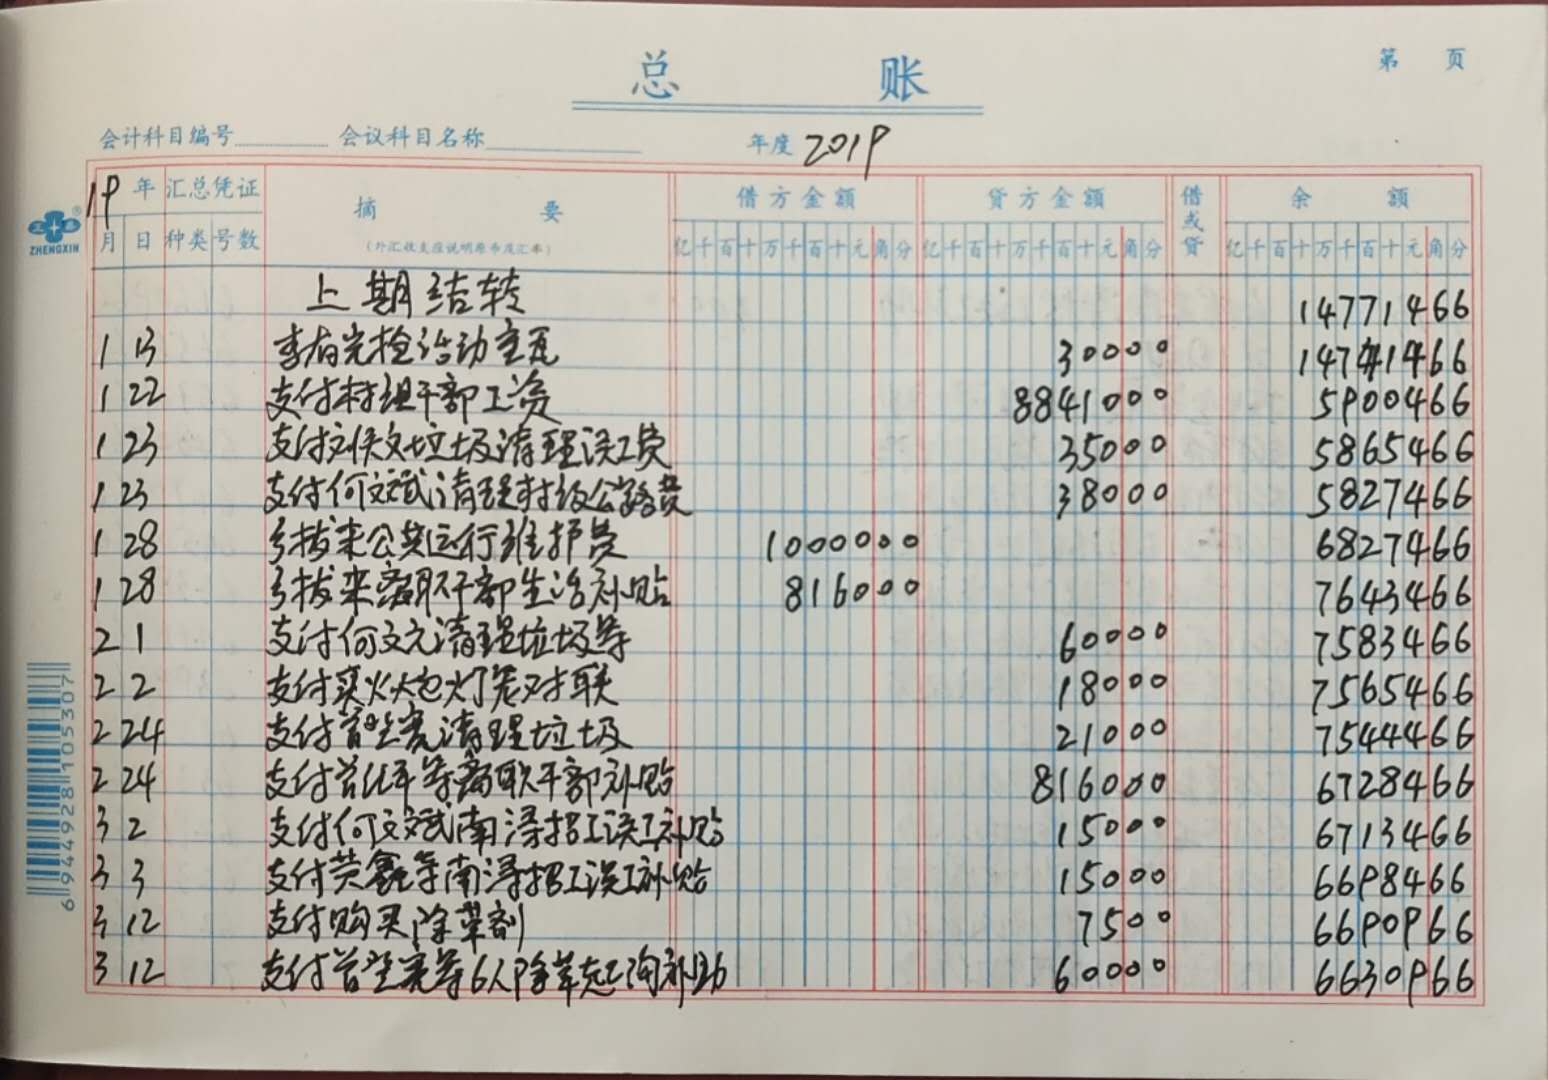 总 账
第 页
会计科目编号 会议科目名称 年度 2019
19年 汇总凭证 摘 要 借方金额 贷方金额 借或贷 余 额
月 日 种类 号数 (外汇收支应说明原币及汇率) 亿千百十万千百十元角分 亿千百十万千百十元角分 亿千百十万千百十元角分
上期结转 14771466
1 13 30000 14741466
1 22 支付村组干部工资 8841000 5900466
1 23 支付刘侯文垃圾清理误工费 35000 5865466
1 23 支付何文斌清理村级公路费 38000 5827466
1 28 乡拔来公共运行维护费 1000000 6827466
1 28 乡拔来离职干部生活补贴 816000 7643466
2 1 支付何文元清理垃圾等 60000 7583466
2 2 支付买火炮灯笼对联 18000 7565466
2 24 支付首坐宽清理垃圾 21000 7544466
2 24 支付首化军等离职干部补贴 816000 6728466
3 2 支付何文斌南浔招工误工补贴 15000 6713466
3 3 支付苂鑫等南浔招工误工补贴 15000 6698466
3 12 支付购买除草剂 7500 6690966
3 12 支付首坐宽等6人除草 补助 60000 6630966
ZHENGXIN
6944928105307